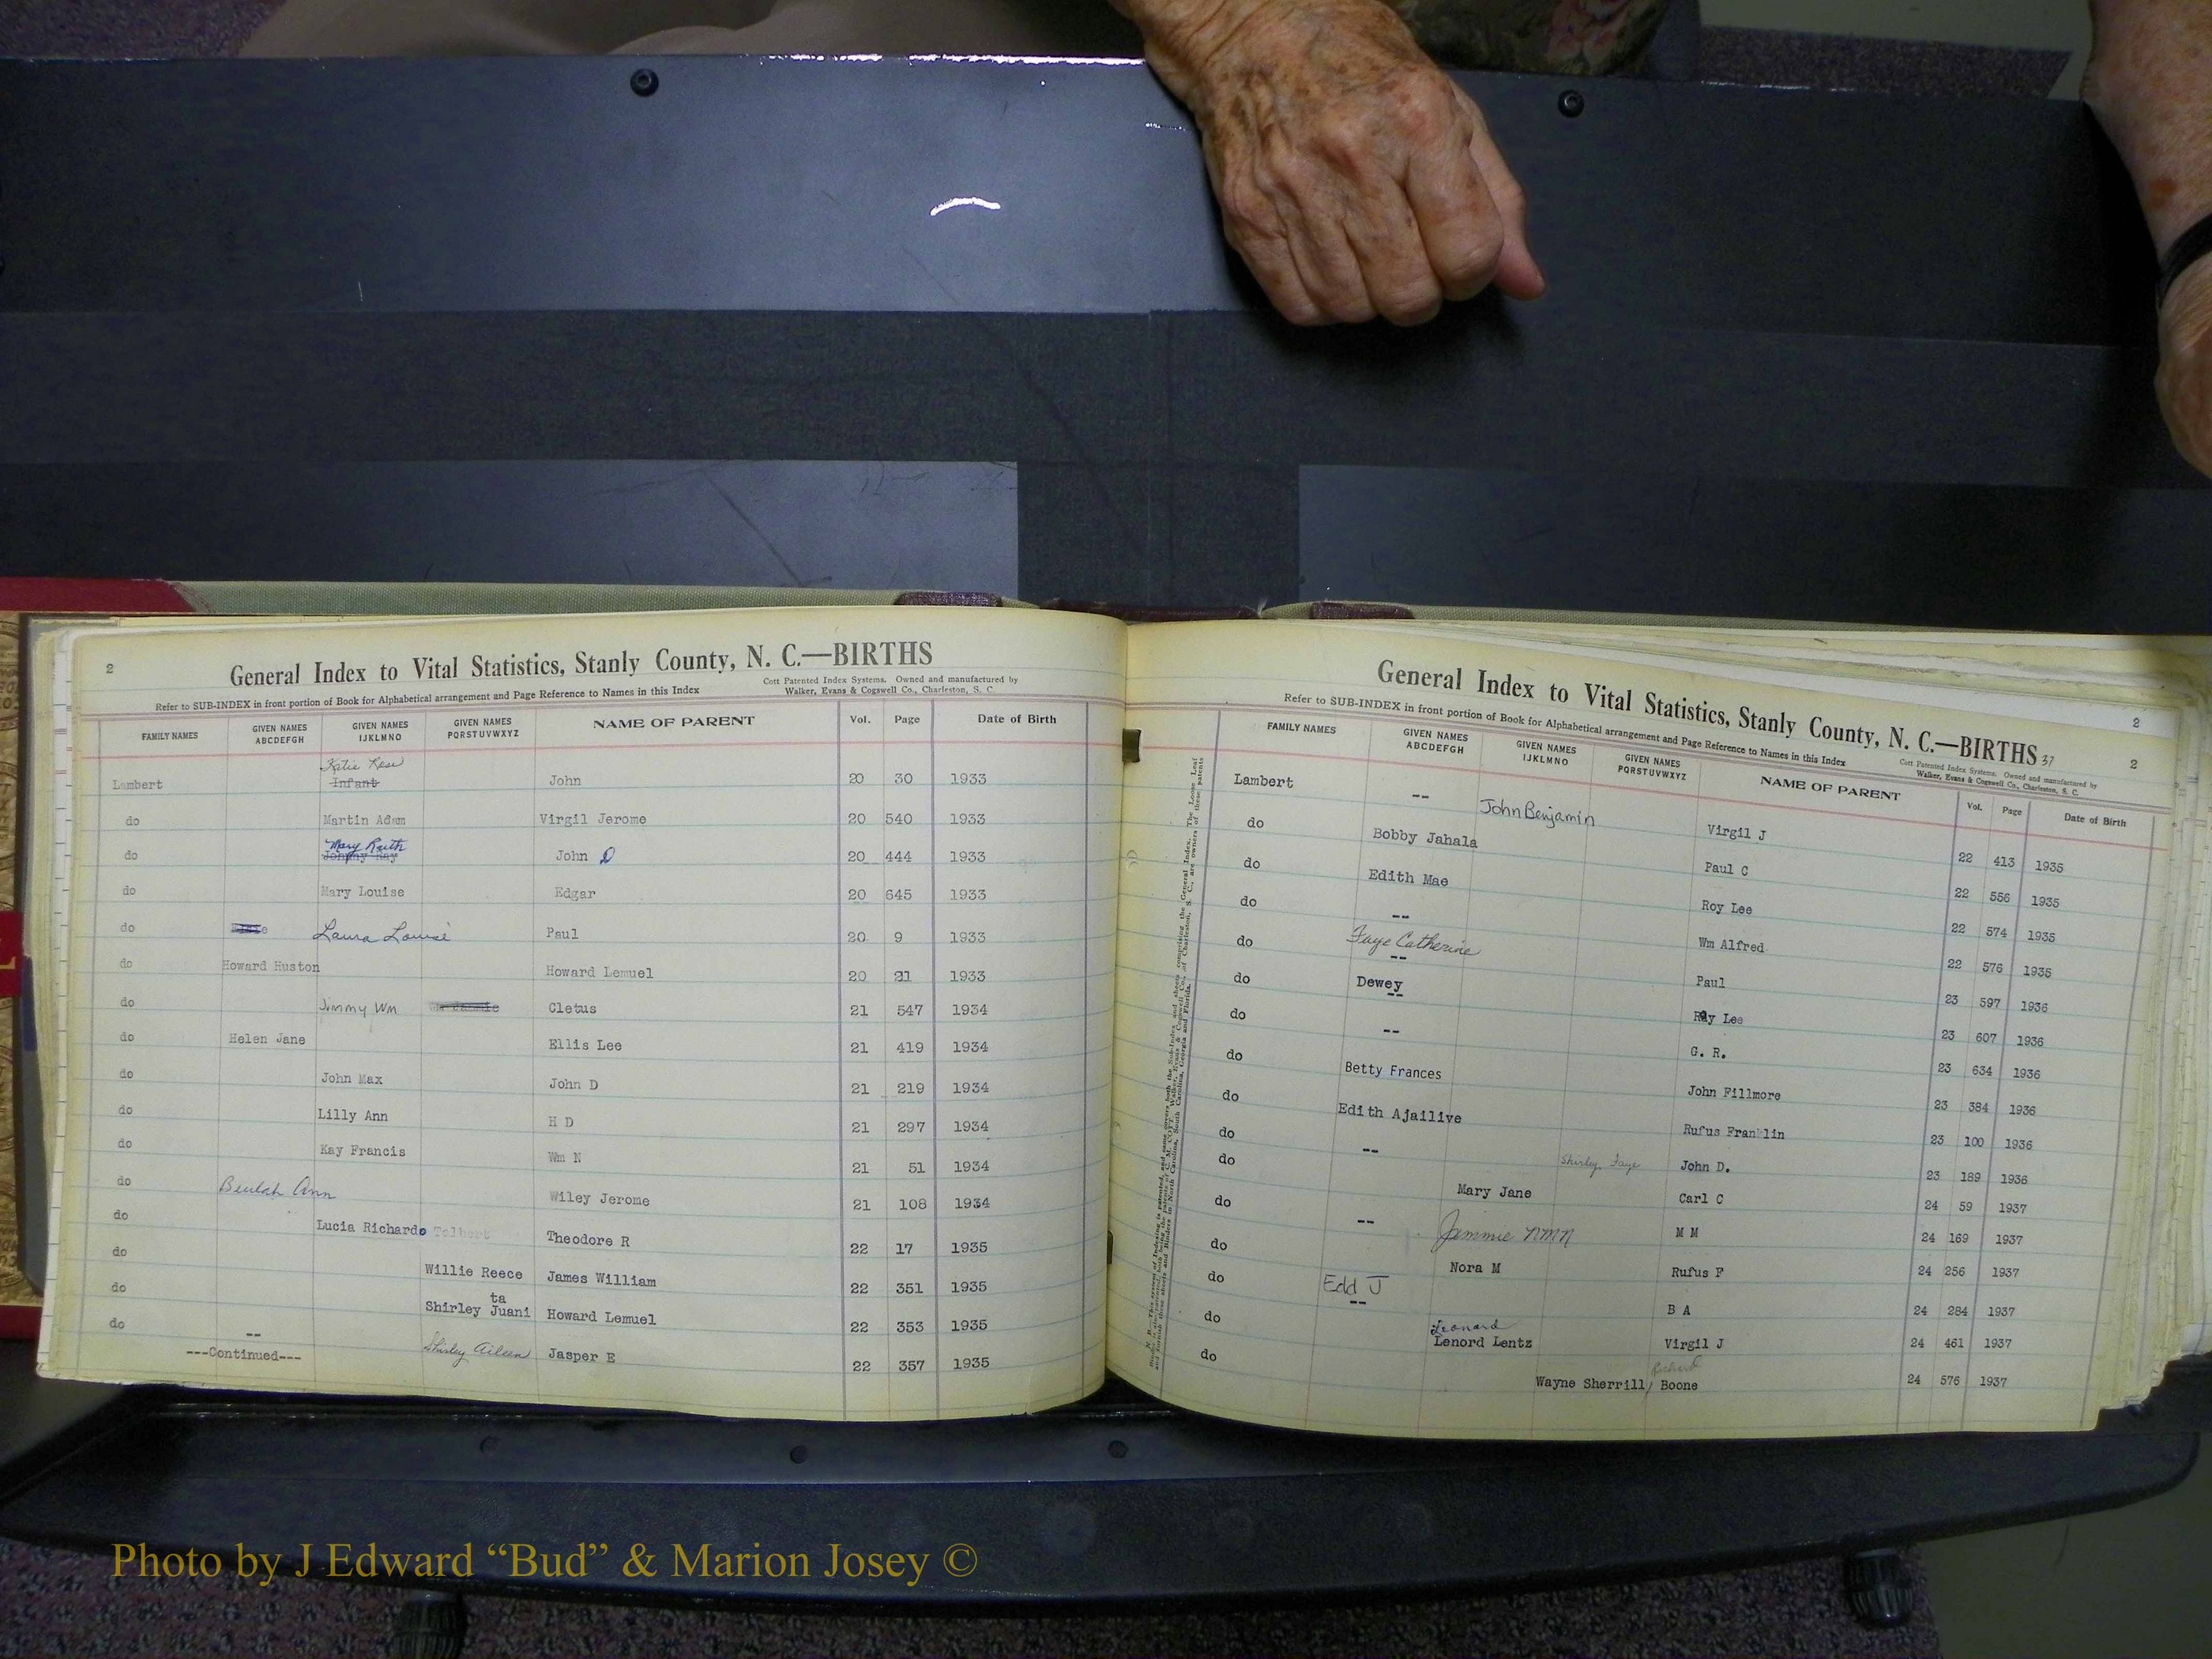 2
General Index to Vital Statistics, Stanly County, N. C.—BIRTHS
Cott Patented Index Systems. Owned and manufactured by
Walker, Evans & Cogswell Co., Charleston, S. C.
Refer to SUB-INDEX in front portion of Book for Alphabetical arrangement and Page Reference to Names in this Index
FAMILY NAMES GIVEN NAMES ABCDEFGH GIVEN NAMES IJKLMNO GIVEN NAMES PQRSTUVWXYZ NAME OF PARENT Vol. Page Date of Birth
Katie Rose
Lambert Infant John 20 30 1933
do Martin Adam Virgil Jerome 20 540 1933
Mary Ruth
do John D 20 444 1933
do Mary Louise Edgar 20 645 1933
do Laura Louise Paul 20 9 1933
do Howard Huston Howard Lemuel 20 21 1933
do Jimmy Wm Cletus 21 547 1934
do Helen Jane Ellis Lee 21 419 1934
do John Max John D 21 219 1934
do Lilly Ann H D 21 297 1934
do Kay Francis Wm N 21 51 1934
do Beulah Ann Wiley Jerome 21 108 1934
do Lucia Richardo Tolbert Theodore R 22 17 1935
do Willie Reece James William 22 351 1935
ta
do Shirley Juani Howard Lemuel 22 353 1935
do -- Shirley Aileen Jasper E 22 357 1935
---Continued---
2
General Index to Vital Statistics, Stanly County, N. C.—BIRTHS 37
2
Refer to SUB-INDEX in front portion of Book for Alphabetical arrangement and Page Reference to Names in this Index
Cott Patented Index Systems. Owned and manufactured by
Walker, Evans & Cogswell Co., Charleston, S. C.
FAMILY NAMES GIVEN NAMES ABCDEFGH GIVEN NAMES IJKLMNO GIVEN NAMES PQRSTUVWXYZ NAME OF PARENT Vol. Page Date of Birth
Lambert -- John Benjamin Virgil J 22 413 1935
do Bobby Jahala Paul C 22 556 1935
do Edith Mae Roy Lee 22 574 1935
do -- Faye Catherine Wm Alfred 22 576 1935
do -- Dewey Paul 23 597 1936
do -- Ray Lee 23 607 1936
do -- G. R. 23 634 1936
do Betty Frances John Fillmore 23 384 1936
do Edith Ajailive Rufus Franklin 23 100 1936
do -- Shirley Faye John D. 23 189 1936
do Mary Jane Carl C 24 59 1937
do -- Jimmie NMN M M 24 169 1937
do Nora M Rufus F 24 256 1937
do Edd J -- B A 24 284 1937
Leonard
do Lenord Lentz Virgil J 24 461 1937
Richard
do Wayne Sherrill Boone 24 576 1937
Photo by J Edward “Bud” & Marion Josey ©